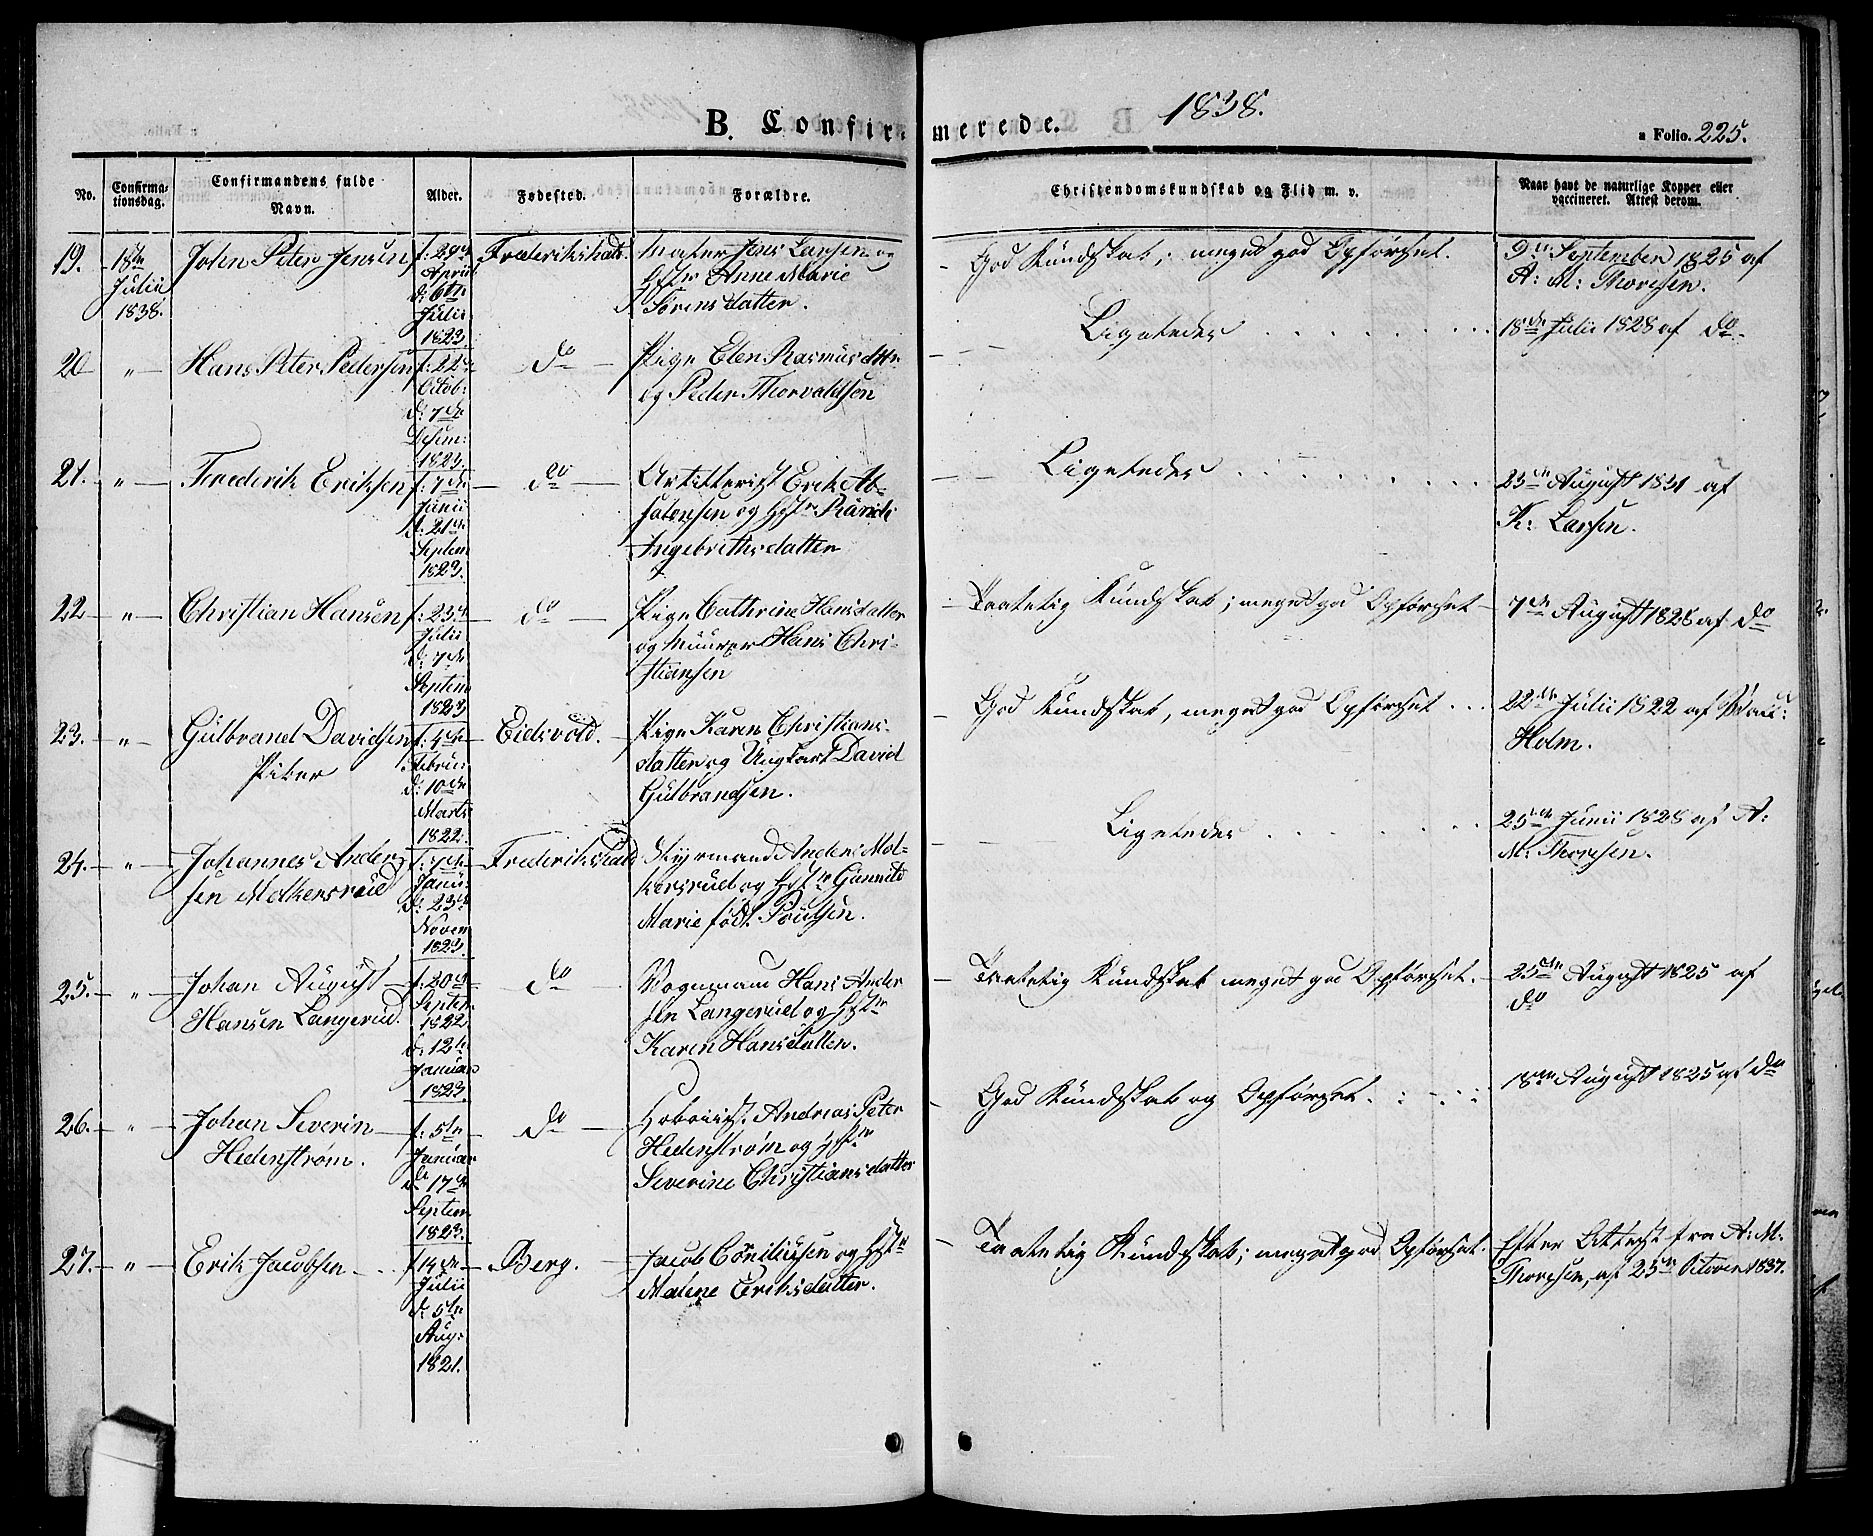 B. Confirmerede. 1838.
a Folio. 225.
No. Confirmationsdag. Confirmandens fulde Navn. Alder. Fødested. Forældre. Christendomskundskab og Flid m. v. Naar havt de naturlige Kopper eller vaccineret. Attest derom.
19. 18de Julii 1838. John Peter Jensen f: 29de April d: 6te Julii 1823 Frederikshald. Jens Larsen og Hstr Anne Marie Sørensdatter. God Kundskab, meget god Opførsel. 9de September 1825 af A: M: Thoresen.
20 " Hans Peter Pedersen f: 22de Octob: d: 7de Desem: 1823. do Pige Elen Rasmusdtr og Peder Thorvaldsen Ligeledes 18de Julii 1828 af do
21. " Frederik Eriksen f: 7de Junii d: 21de Septem 1823. do Artillerist Erik Absalonsen og Hstr Ingebrethsdatter Ligeledes 25de August 1831 af K: Larsen.
22 " Christian Hansen f: 23de Julii d: 7de Septem 1823 do Pige Cathrine Hansdatter og Muurer Hans Christiansen Taalelig Kundskab; meget god Opførsel 7de August 1828 af do
23. " Gulbrand Davidsen f: 4de Febru: d: 10de Marts 1822. Eidsvold. Pige Karen Christiansdatter og Ungkarl David Gulbrandsen. God Kundskab, meget god Opførsel 22de Julii 1822 af Holm.
24. " Johannes Andersen Molkersrud f: 7de Janu: d: 23de Novem 1823. Frederikshald Styrmand Anders Molkersrud og Hstr Gunnild Marie født Poulsen. Ligeledes 25de Junii 1828 af A: M: Thoresen.
25. " Johan August Hansen Langerud. f: 20de Septem 1822 d: 12te Januar 1823. do Vognmand Hans Andersen Langerud og Hstr Karen Hansdatter. Taalelig Kundskab meget god Opførsel. 25de August 1825 af do
26. " Johan Severin Hedenstrøm. f: 5te Januar d: 17de Septem 1823. do Hoboiist Andreas Peter Hedenstrøm og Hstr Severine Christiansdatter God Kundskab og Opførsel. 18de August 1825 af do
27. " Erik Jacobsen f 14de Julii d: 5te Aug: 1821. Berg. Jacob Corniliusen og Hstr Malene Eriksdatter. Taalelig Kundskab; meget god Opførsel. Efter Attest fra A: M. Thoresen, af 25de October 1837.